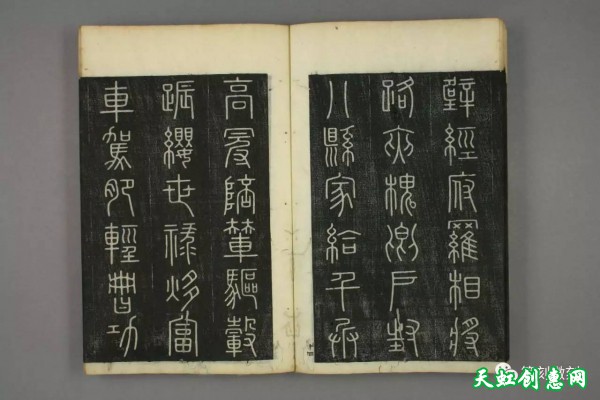 壁經府羅相將
路夾槐卿戶封
八縣家給千兵
高冠陪輦驅轂
振纓世祿侈富
車駕肥輕策功
篆刻教
天虹创惠网